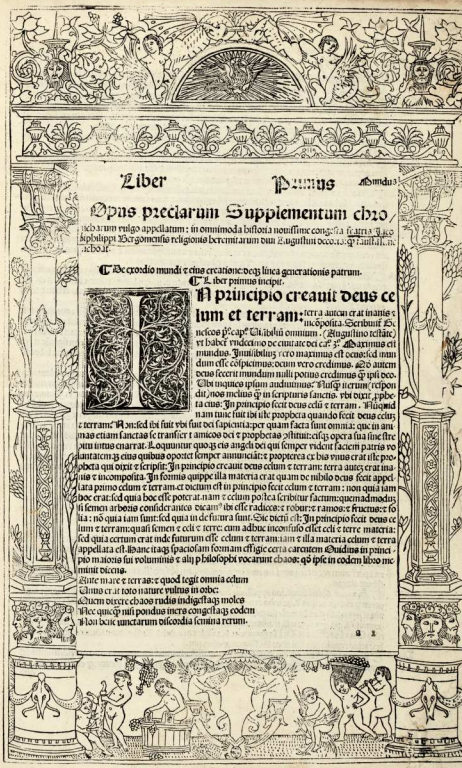 Liber Primus Mundus
Opus preclarum Supplementum chro/
nicharum vulgo appellatum: in omnimoda historia novissime congesta fratris Jaco
biphilippi Bergomensis religionis heremitarum divi Augustini decoris:
inchoat.
¶ De exordio mundi et eius creatione: linea generationis patrum.
¶ Liber primus incipit.
IN principio creavit deus ce
lum et terram: terra autem erat inanis et
incōposita. Scribunt
Augustino testāte
ut habet undecimo de civitate dei ca. Maximus est
mundus. Invisibiliū vero maximus est deus: sed mun
dum esse cōspicimus: deum vero credimus. autem
deus fecerit mundum nulli potius credimus q̄ ipsi deo.
Ubi inquies ipsum audivimus: Nusq̄ (respon
dit) nos melius q̄ in scripturis sanctis. ubi dixit ꝓphe
ta eius: In principio fecit deus celū et terram. Nūquid
nam tunc fuit ibi iste propheta quando fecit deus celuʒ
et terram: Non: sed ibi fuit sapientia: per quam facta sunt omnia: que in ani
mas etiam sanctas se transfert amicos dei et prophetas cōstituit: eisqʒ opera sua sine stre
pitu intus enarrat. Loquuntur quoqʒ eis angeli dei qui semper vident faciem patris vo
luntatemqʒ eius quibus oportet semper annunciāt: et propterea ex his unus erat iste pro
pheta qui dixit et scripsit: In principio creavit deus celum et terram: terra autez erat ina
nis et incomposita. In formis quippe illa materia erat quam de nihilo deus fecit appel
lata primo celum et terram. et dictum est in principio fecit celum et terram: non quia iam
hoc erat: sed quia hoc esse poterat. nam et celum postea scribitur factum: quemadmoduʒ
si semen arboris considerantes dicamus ibi esse radices et robur: et ramos: et fructus: et fo
lia: nō quia iam sunt: sed quia inde futura sunt. Sic dictū est: In principio fecit deus ce
lum et terram: quasi semen et celi et terre: cum adhuc inconfuso esset celi et terre materia:
sed quia certum erat inde futurum esse celum et terram: iam et illa materia celum et terra
appellata est. Hanc itaqʒ spaciosam formam effigie certa carentem Ovidius in princi/
pio maioris sui voluminis et alij philosophi vocarunt chaos: qd̄ ipse in eodem libro me
minit dicens.
Ante mare et terras: et quod tegit omnia celum
Unus erat toto nature vultus in orbe:
Quem dixere chaos rudis indigestaqʒ moles
Nec quicqʒ nisi pondus iners congestaqʒ eodem
Non bene iunctarum discordia semina rerum.
a 1